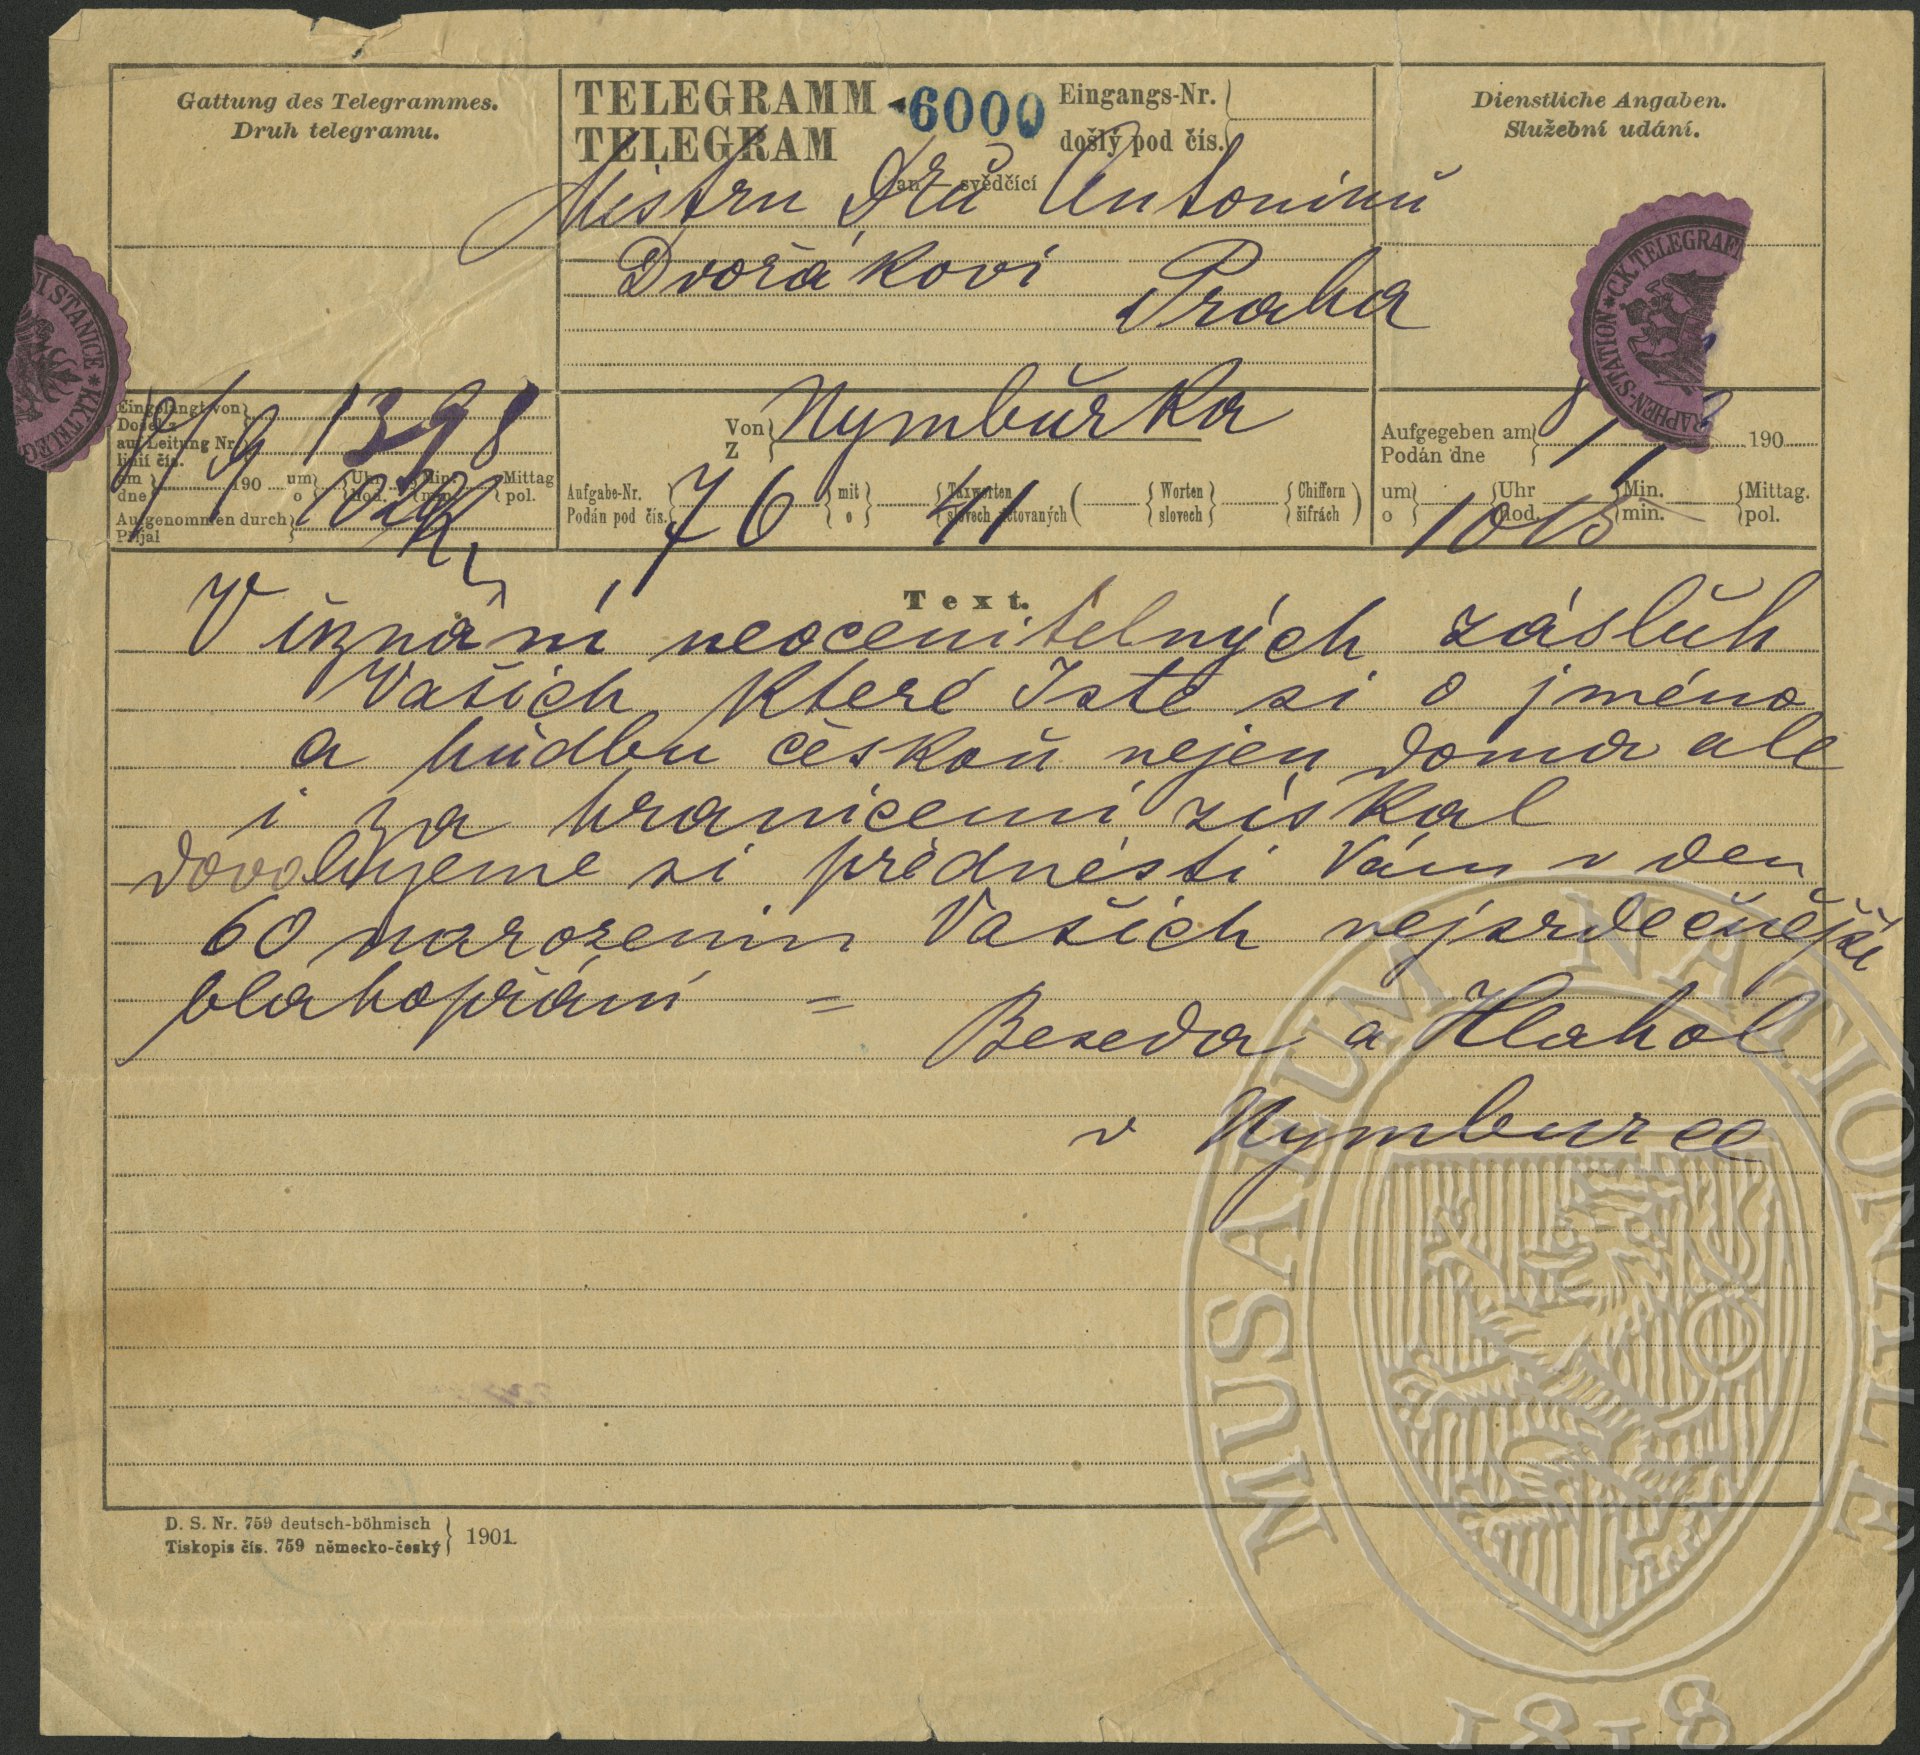 Gattung des Telegrammes.
Druh telegramu.
TELEGRAMM
TELEGRAM
6000
Eingangs-Nr.
došlý pod čís.
an — svědčící
Dienstliche Angaben.
Služební udání.
Mistru Dru Antonínu
Dvořákovi
Praha
STANICE * K.K. TELEG
RAPHEN-STATION * C.K. TELEGRAF
Eingelangt von
Došel z
auf Leitung Nr.
linii čís.
am
dne
190
um
o
Uhr
hod.
Min.
min.
Mittag
pol.
Aufgenommen durch
Přijal
1398
Von
Z
Nymburka
Aufgabe-Nr.
Podán pod čís.
76
mit
o
41
Taxworten
slovech tctovaných
Worten
slovech
Chiffern
šifrách
Aufgegeben am
Podán dne
190
um
o
Uhr
hod.
Min.
min.
Mittag.
pol.
1015
Text.
V uznání neocenitelných zásluh
Vašich které Jste si o jméno
a hudbu českou nejen doma ale
i za hranicemi získal
dovolujeme si přednésti Vám v den
60 narozenin Vašich nejsrdečnější
blahopřání =
Beseda a Hlahol
v Nymburce
D. S. Nr. 759 deutsch-böhmisch
Tiskopis čís. 759 německo-český
1901.
MUSAEUM NATIONALE
1818